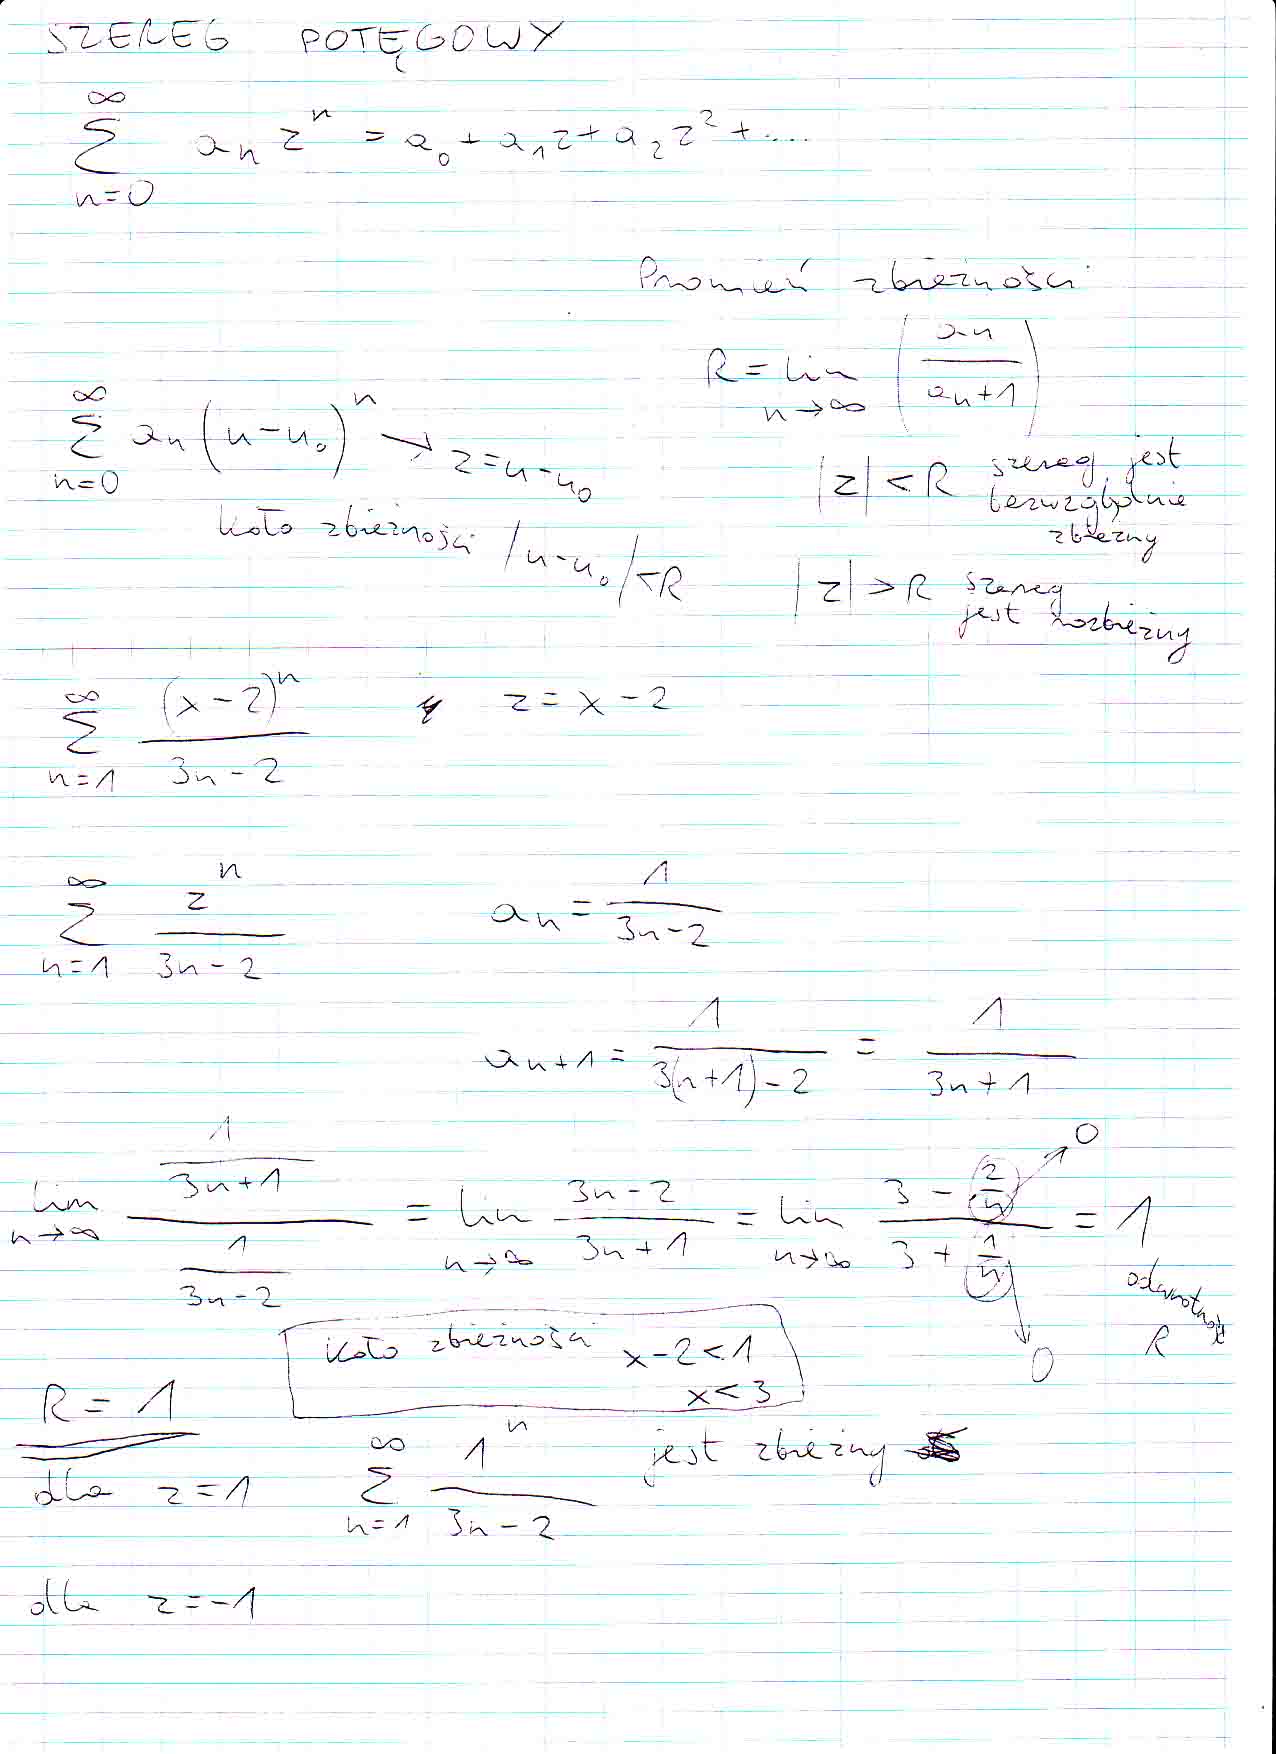 SZEREG POTĘGOWY
∞
∑ aₙ zⁿ = a₀ + a₁z + a₂z² + ....
n=0
Promień zbieżności
R = lim (aₙ / aₙ₊₁)
n→∞
∞
∑ aₙ (u-u₀)ⁿ → z = u-u₀
n=0
|z| < R szereg jest
bezwzględnie
zbieżny
koło zbieżności |u-u₀| < R
|z| > R szereg
jest rozbieżny
∞
∑ (x-2)ⁿ / (3n-2) z = x-2
n=1
∞
∑ zⁿ / (3n-2) aₙ = 1 / (3n-2)
n=1
aₙ₊₁ = 1 / (3(n+1)-2) = 1 / (3n+1)
lim (1 / (3n+1)) / (1 / (3n-2)) = lim (3n-2) / (3n+1) = lim (3 - 2/n) / (3 + 1/n) = 1
n→∞ n→∞ n→∞
0
0
odwrotność
R
koło zbieżności x-2<1
x<3
R = 1
∞
dla z=1 ∑ 1ⁿ / (3n-2) jest zbieżny
n=1
dla z=-1